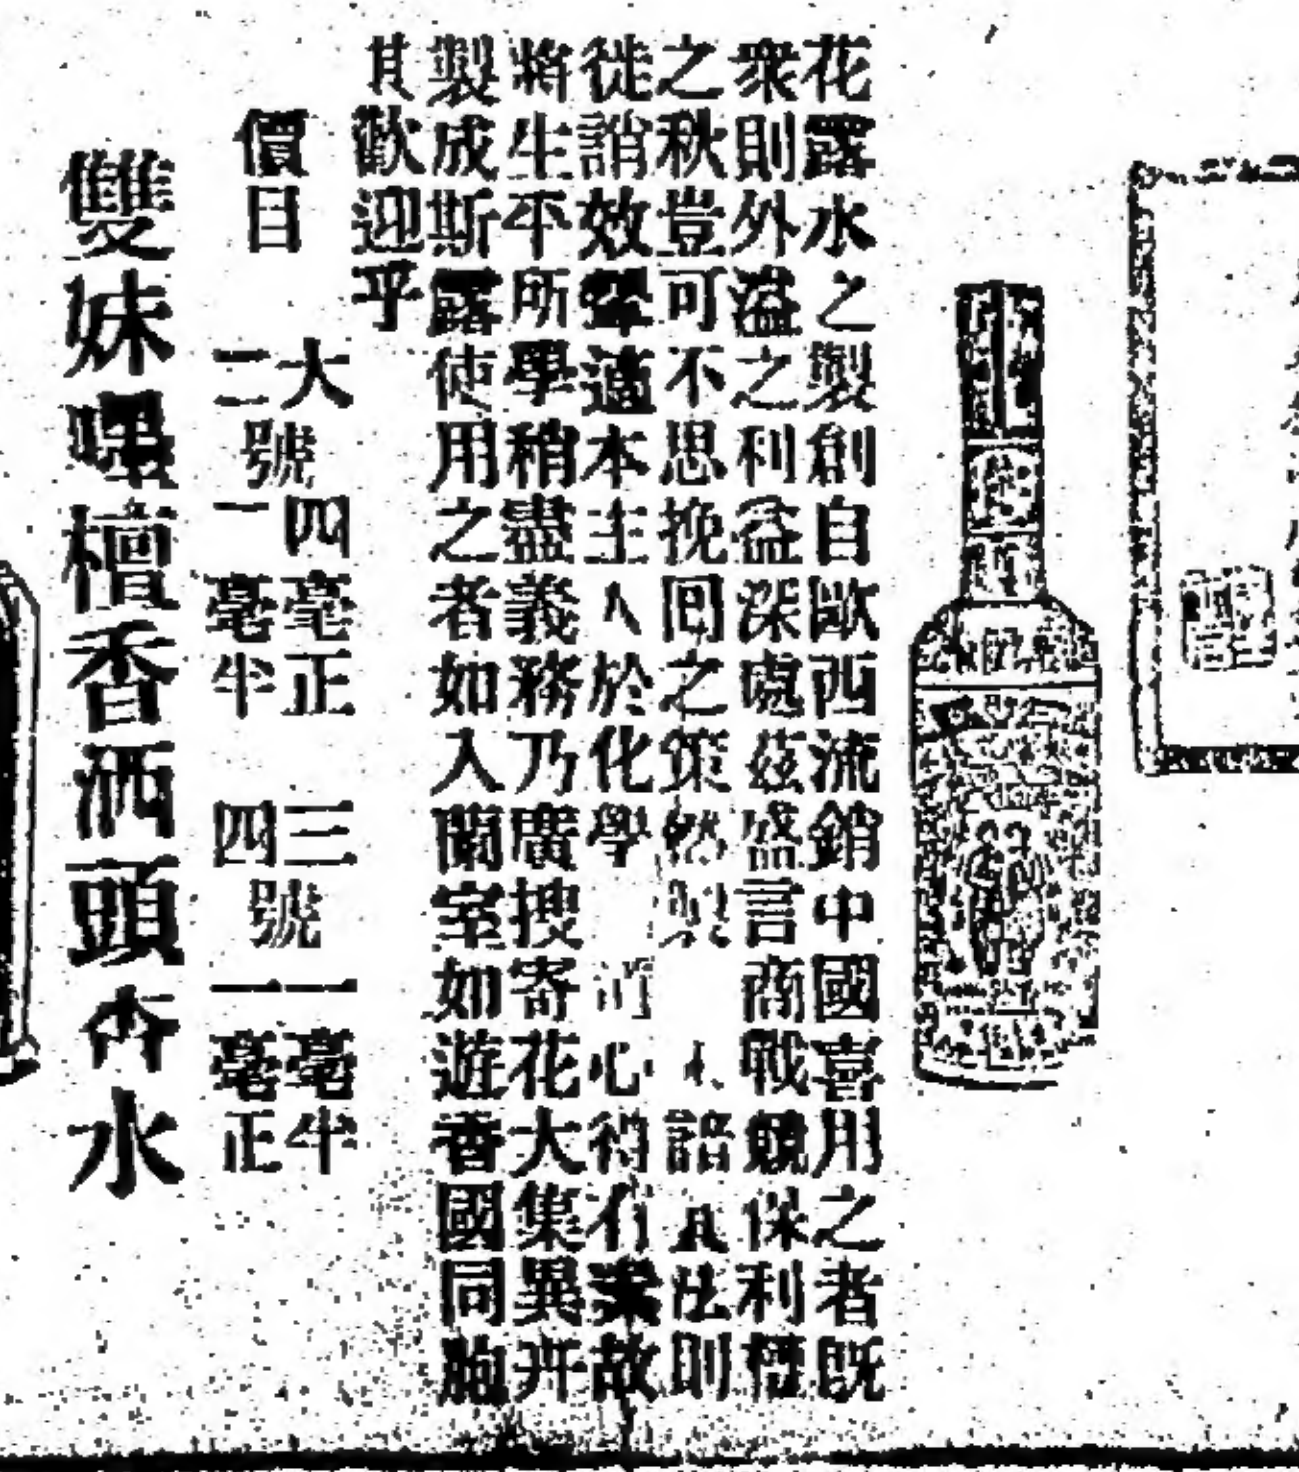 花露水之製創自歐西流銷中國喜用之者既
衆則外溢之利益深處茲盛言商戰競保利權
之秋豈可不思挽囘之策然諳其法則
徙誚效顰適本主人於化學心得有素故
將生平所學稍盡義務乃廣搜寄花大集異卉
製成斯露使用之者如入蘭室如遊香國同胞
其歡迎乎
價目
大號四毫正 三號一毫半
二號一毫半 四號一毫正
雙妹嚜檀香洒頭香水